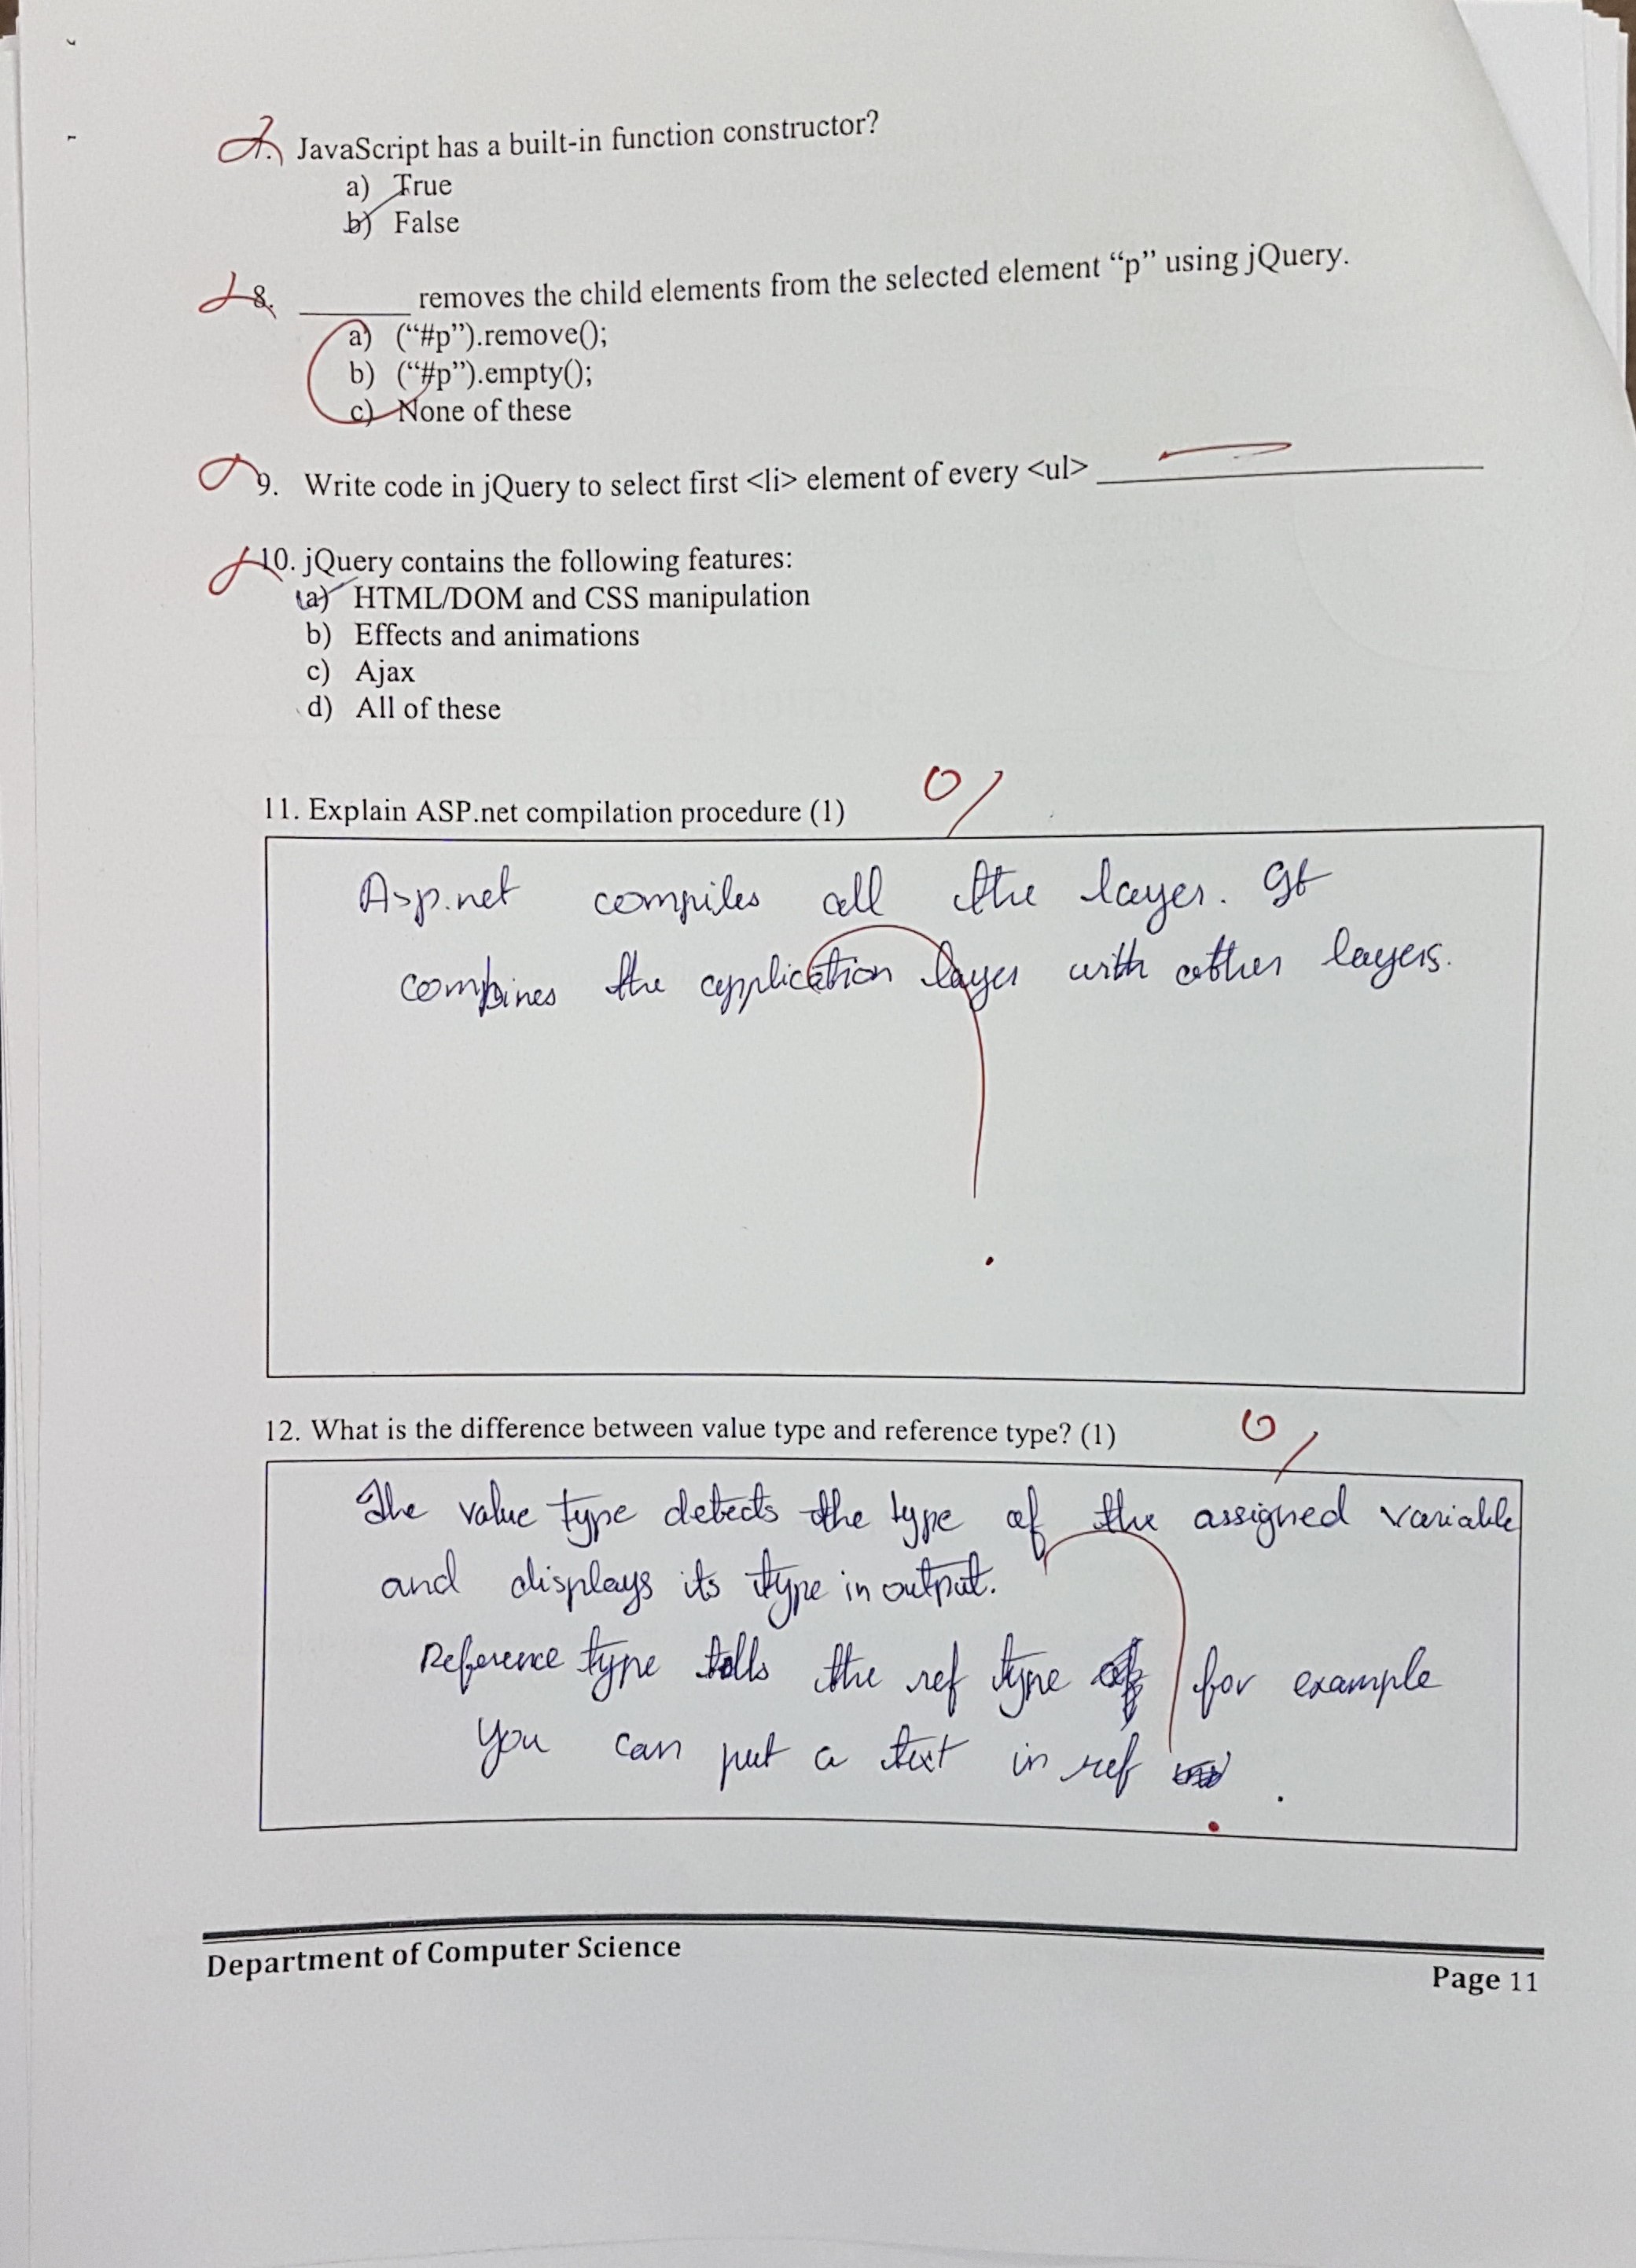 7. JavaScript has a built-in function constructor?
a) True
b) False
8. ______ removes the child elements from the selected element “p” using jQuery.
a) (“#p”).remove();
b) (“#p”).empty();
c) None of these
9. Write code in jQuery to select first <li> element of every <ul> ______
10. jQuery contains the following features:
(a) HTML/DOM and CSS manipulation
b) Effects and animations
c) Ajax
d) All of these
0/
11. Explain ASP.net compilation procedure (1)
Asp.net compiles all the layer. It
combines the application layer with other layers.
12. What is the difference between value type and reference type? (1)
0/
The value type detects the type of the assigned variable
and displays its type in output.
Reference type tells the ref type for example
you can put a text in ref .
Department of Computer Science
Page 11